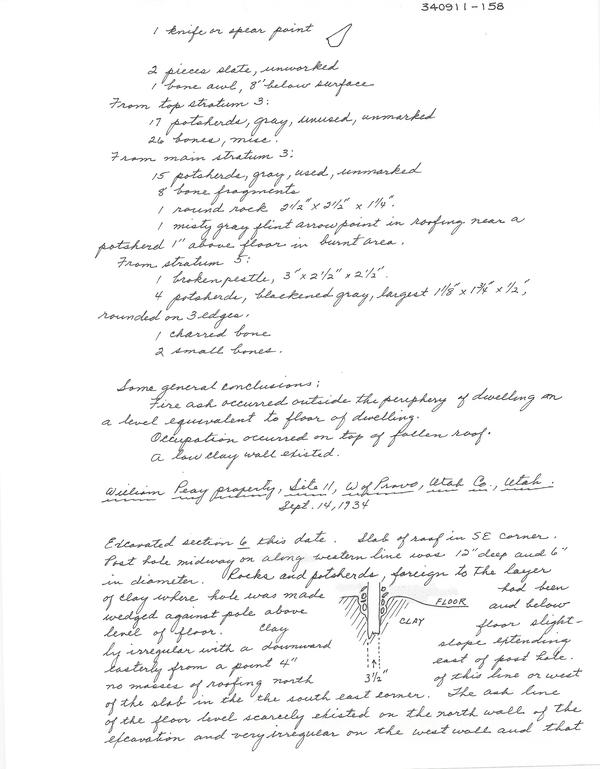 340911-158
1 knife or spear point
2 pieces slate, unworked
1 bone awl, 8" below surface
From top stratum 3:
17 potsherds, gray, unused, unmarked
26 bones, misc.
From main stratum 3:
15 potsherds, gray, used, unmarked
8 bone fragments
1 round rock 2 1/2" x 2 1/2" x 1 1/4".
1 misty gray flint arrowpoint in roofing near a
potsherd 1" above floor in burnt area.
From stratum 5:
1 broken pestle, 3" x 2 1/2" x 2 1/2".
4 potsherds, blackened gray, largest 1 1/8" x 1 3/4" x 1/2",
rounded on 3 edges.
1 charred bone
2 small bones.
Some general conclusions:
Fire ash occurred outside the periphery of dwelling on
a level equivalent to floor of dwelling.
Occupation occurred on top of fallen roof.
A low clay wall existed.
William Peay property, Site 11, W of Provo, Utah Co., Utah.
Sept. 14, 1934
Excavated section 6 this date. Slab of roof in SE corner.
Post hole midway on along western line was 12" deep and 6"
in diameter. Rocks and potsherds, foreign to the layer
of clay where hole was made had been
wedged against pole above and below
level of floor. Clay floor slight-
ly irregular with a downward slope extending
easterly from a point 4" east of post hole.
no masses of roofing north of this line or west
of the slab in the the south east corner. The ash line
of the floor level scarcely existed on the north wall of the
excavation and very irregular on the west wall and that
FLOOR
CLAY
3 1/2"